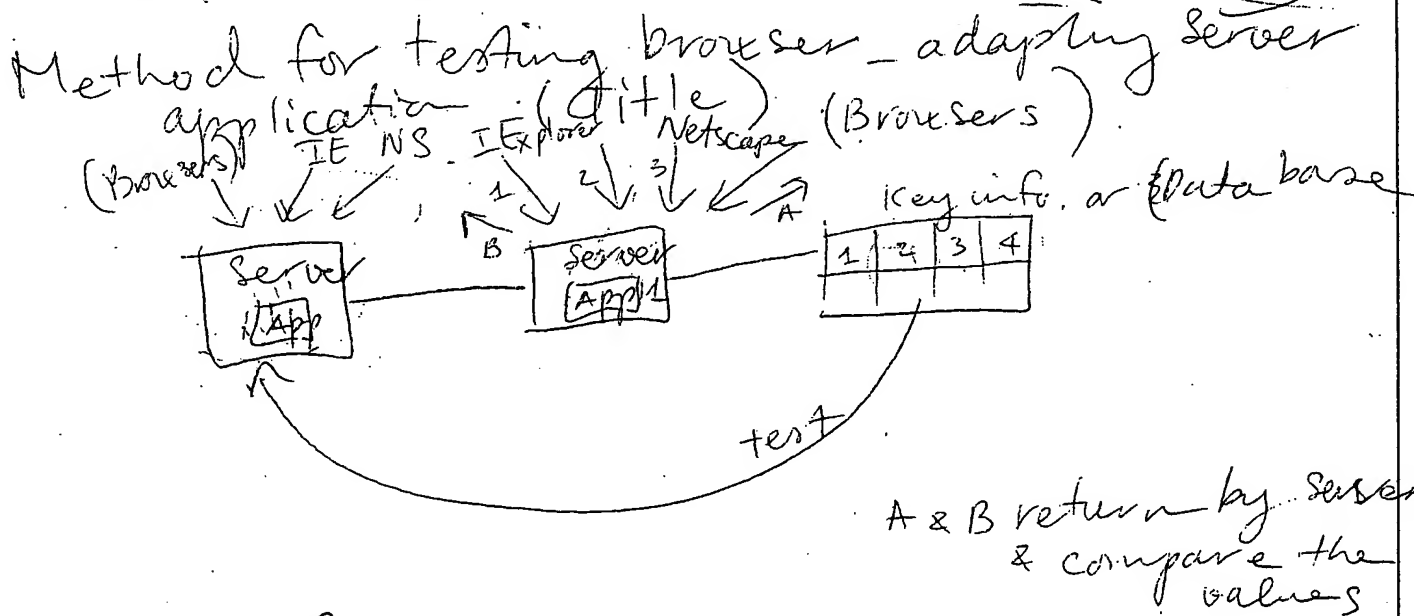 Method for testing browser_adapting Server
application (title)
(Browsers) IE NS IExplorer Netscape (Browsers)
1 2 3 A
B
Key info. or Database
Server Server 1 2 3 4
App App 1
test
A & B return by server
& compare the
values